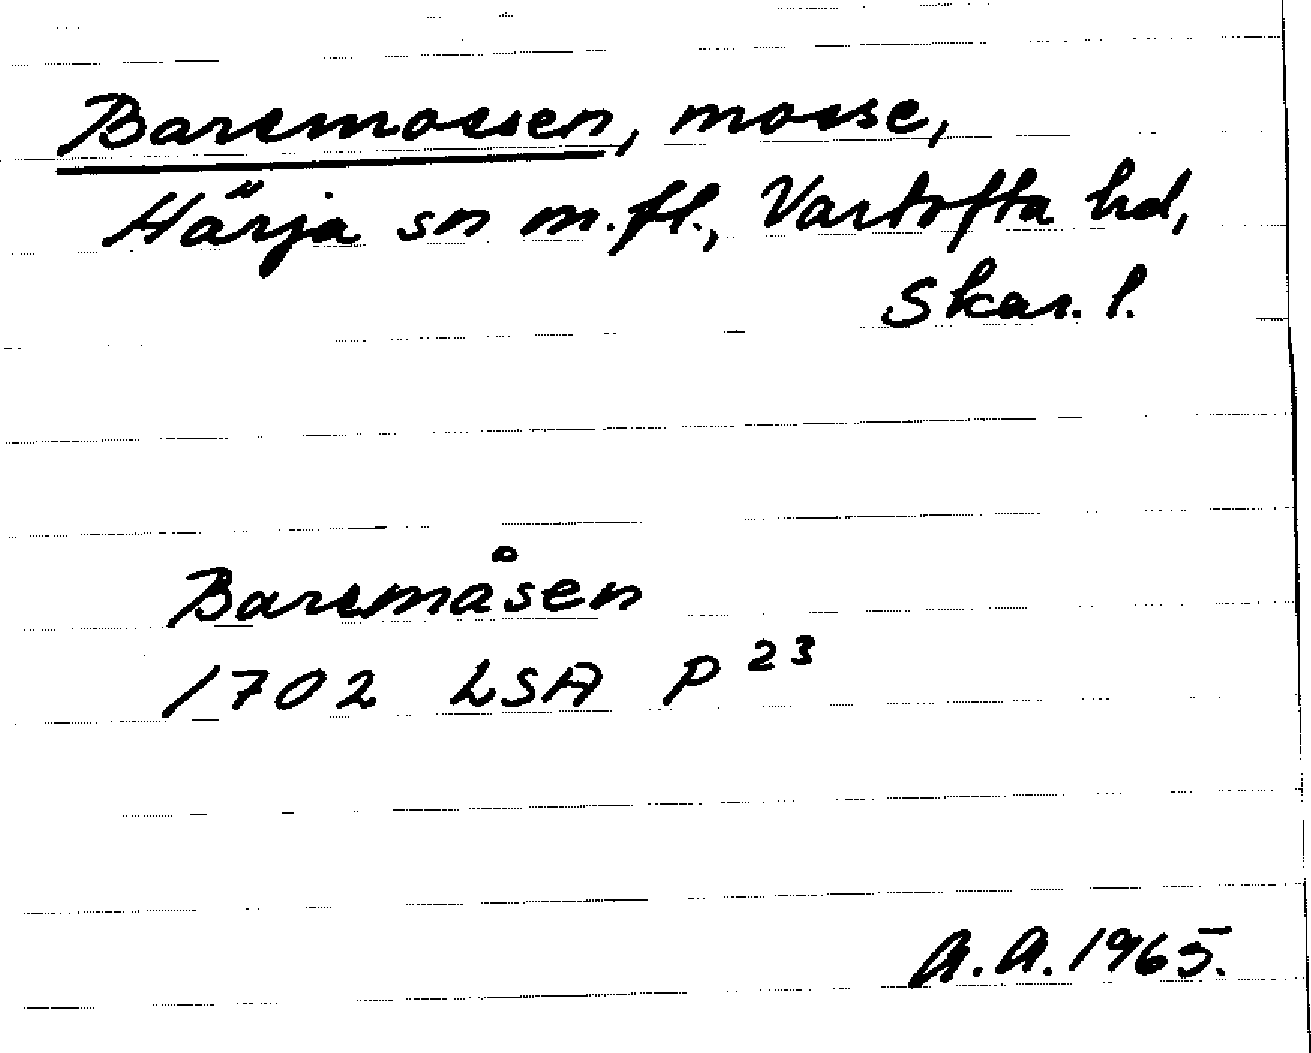 Barsmossen, mosse,
Härja sn m.fl., Vartofta hd,
Skar. l.
Barsmåsen
1702 LSA P 23
A.A. 1965.